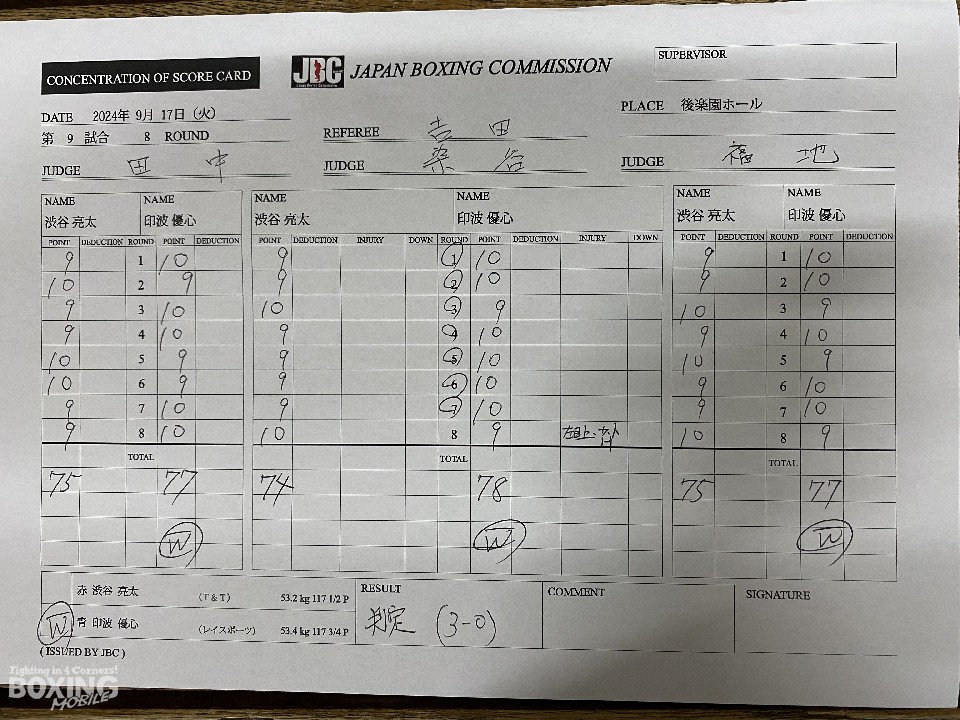 CONCENTRATION OF SCORE CARD
JBC JAPAN BOXING COMMISSION
SUPERVISOR
DATE 2024年 9月 17日 (火)
PLACE 後楽園ホール
第 9 試合 8 ROUND
REFEREE 吉田
JUDGE 田中
JUDGE 桑谷
JUDGE 福地
NAME NAME NAME NAME NAME NAME
渋谷 亮太 印波 優心 渋谷 亮太 印波 優心 渋谷 亮太 印波 優心
POINT DEDUCTION ROUND POINT DEDUCTION POINT DEDUCTION INJURY DOWN ROUND POINT DEDUCTION INJURY DOWN POINT DEDUCTION ROUND POINT DEDUCTION
9 1 10 9 1 10 9 1 10
10 2 9 9 2 10 9 2 10
9 3 10 10 3 9 10 3 9
9 4 10 9 4 10 9 4 10
10 5 9 9 5 10 10 5 9
10 6 9 9 6 10 9 6 10
9 7 10 9 7 10 9 7 10
9 8 10 10 8 9 10 8 9
TOTAL TOTAL TOTAL
75 77 74 78 75 77
W W W
赤 渋谷 亮太 (T & T) 53.2 kg 117 1/2 P
W 青 印波 優心 (レイスポーツ) 53.4 kg 117 3/4 P
RESULT
判定 (3-0)
COMMENT
SIGNATURE
( ISSUED BY JBC )
Fighting in 4 Corners!
BOXING
MOBILE